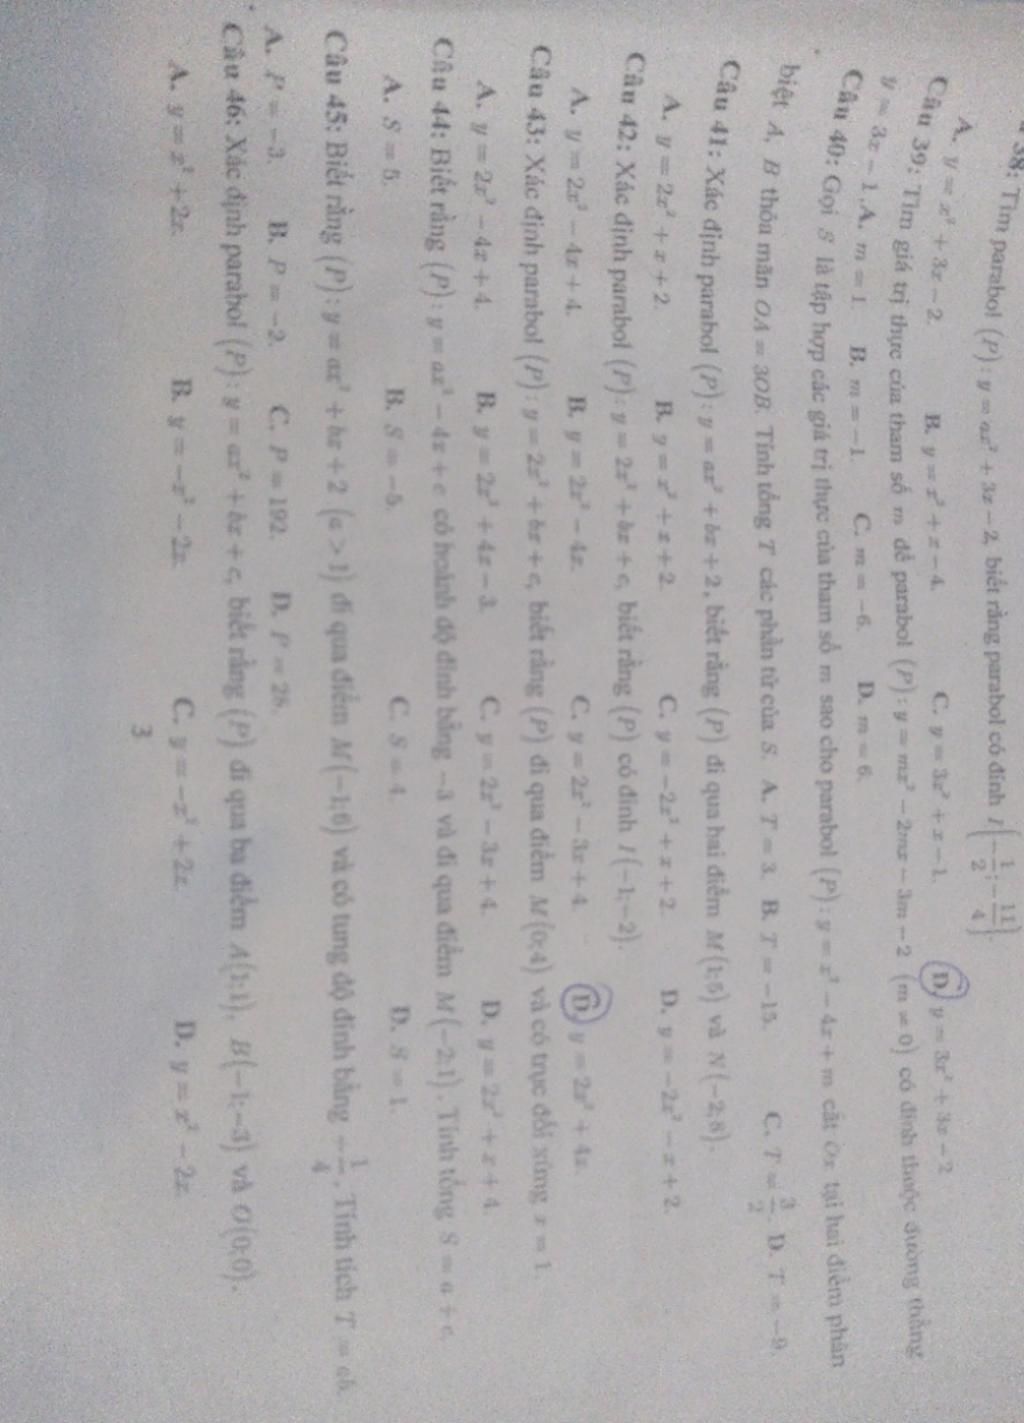 38: Tìm parabol (P): y = ax² + 3x − 2, biết rằng parabol có đỉnh I(−1/2; −11/4).
A. y = x² + 3x − 2. B. y = x² + x − 4. C. y = 3x² + x − 1. D. y = 3x² + 3x − 2
Câu 39: Tìm giá trị thực của tham số m để parabol (P): y = mx² − 2mx − 3m − 2 (m ≠ 0) có đỉnh thuộc đường thẳng
y = 3x − 1. A. m = 1. B. m = −1. C. m = −6. D. m = 6.
Câu 40: Gọi S là tập hợp các giá trị thực của tham số m sao cho parabol (P): y = x² − 4x + m cắt Ox tại hai điểm phân
biệt A, B thỏa mãn OA = 3OB. Tính tổng T các phần tử của S. A. T = 3. B. T = −15. C. T = 3/2. D. T = −9.
Câu 41: Xác định parabol (P): y = ax² + bx + 2, biết rằng (P) đi qua hai điểm M(1;5) và N(−2;8).
A. y = 2x² + x + 2. B. y = x² + x + 2. C. y = −2x² + x + 2. D. y = −2x² − x + 2.
Câu 42: Xác định parabol (P): y = 2x² + bx + c, biết rằng (P) có đỉnh I(−1;−2).
A. y = 2x² − 4x + 4. B. y = 2x² − 4x. C. y = 2x² − 3x + 4. D. y = 2x² + 4x.
Câu 43: Xác định parabol (P): y = 2x² + bx + c, biết rằng (P) đi qua điểm M(0;4) và có trục đối xứng x = 1.
A. y = 2x² − 4x + 4. B. y = 2x² + 4x − 3. C. y = 2x² − 3x + 4. D. y = 2x² + x + 4.
Câu 44: Biết rằng (P): y = ax² − 4x + c có hoành độ đỉnh bằng −3 và đi qua điểm M(−2;1). Tính tổng S = a + c.
A. S = 5. B. S = −5. C. S = 4. D. S = 1.
Câu 45: Biết rằng (P): y = ax² + bx + 2 (a > 1) đi qua điểm M(−1;6) và có tung độ đỉnh bằng −1/4. Tính tích T = ab.
A. P = −3. B. P = −2. C. P = 192. D. P = 28.
Câu 46: Xác định parabol (P): y = ax² + bx + c, biết rằng (P) đi qua ba điểm A(1;1), B(−1;−3) và O(0;0).
A. y = x² + 2x. B. y = −x² − 2x. C. y = −x² + 2x. D. y = x² − 2x.
3